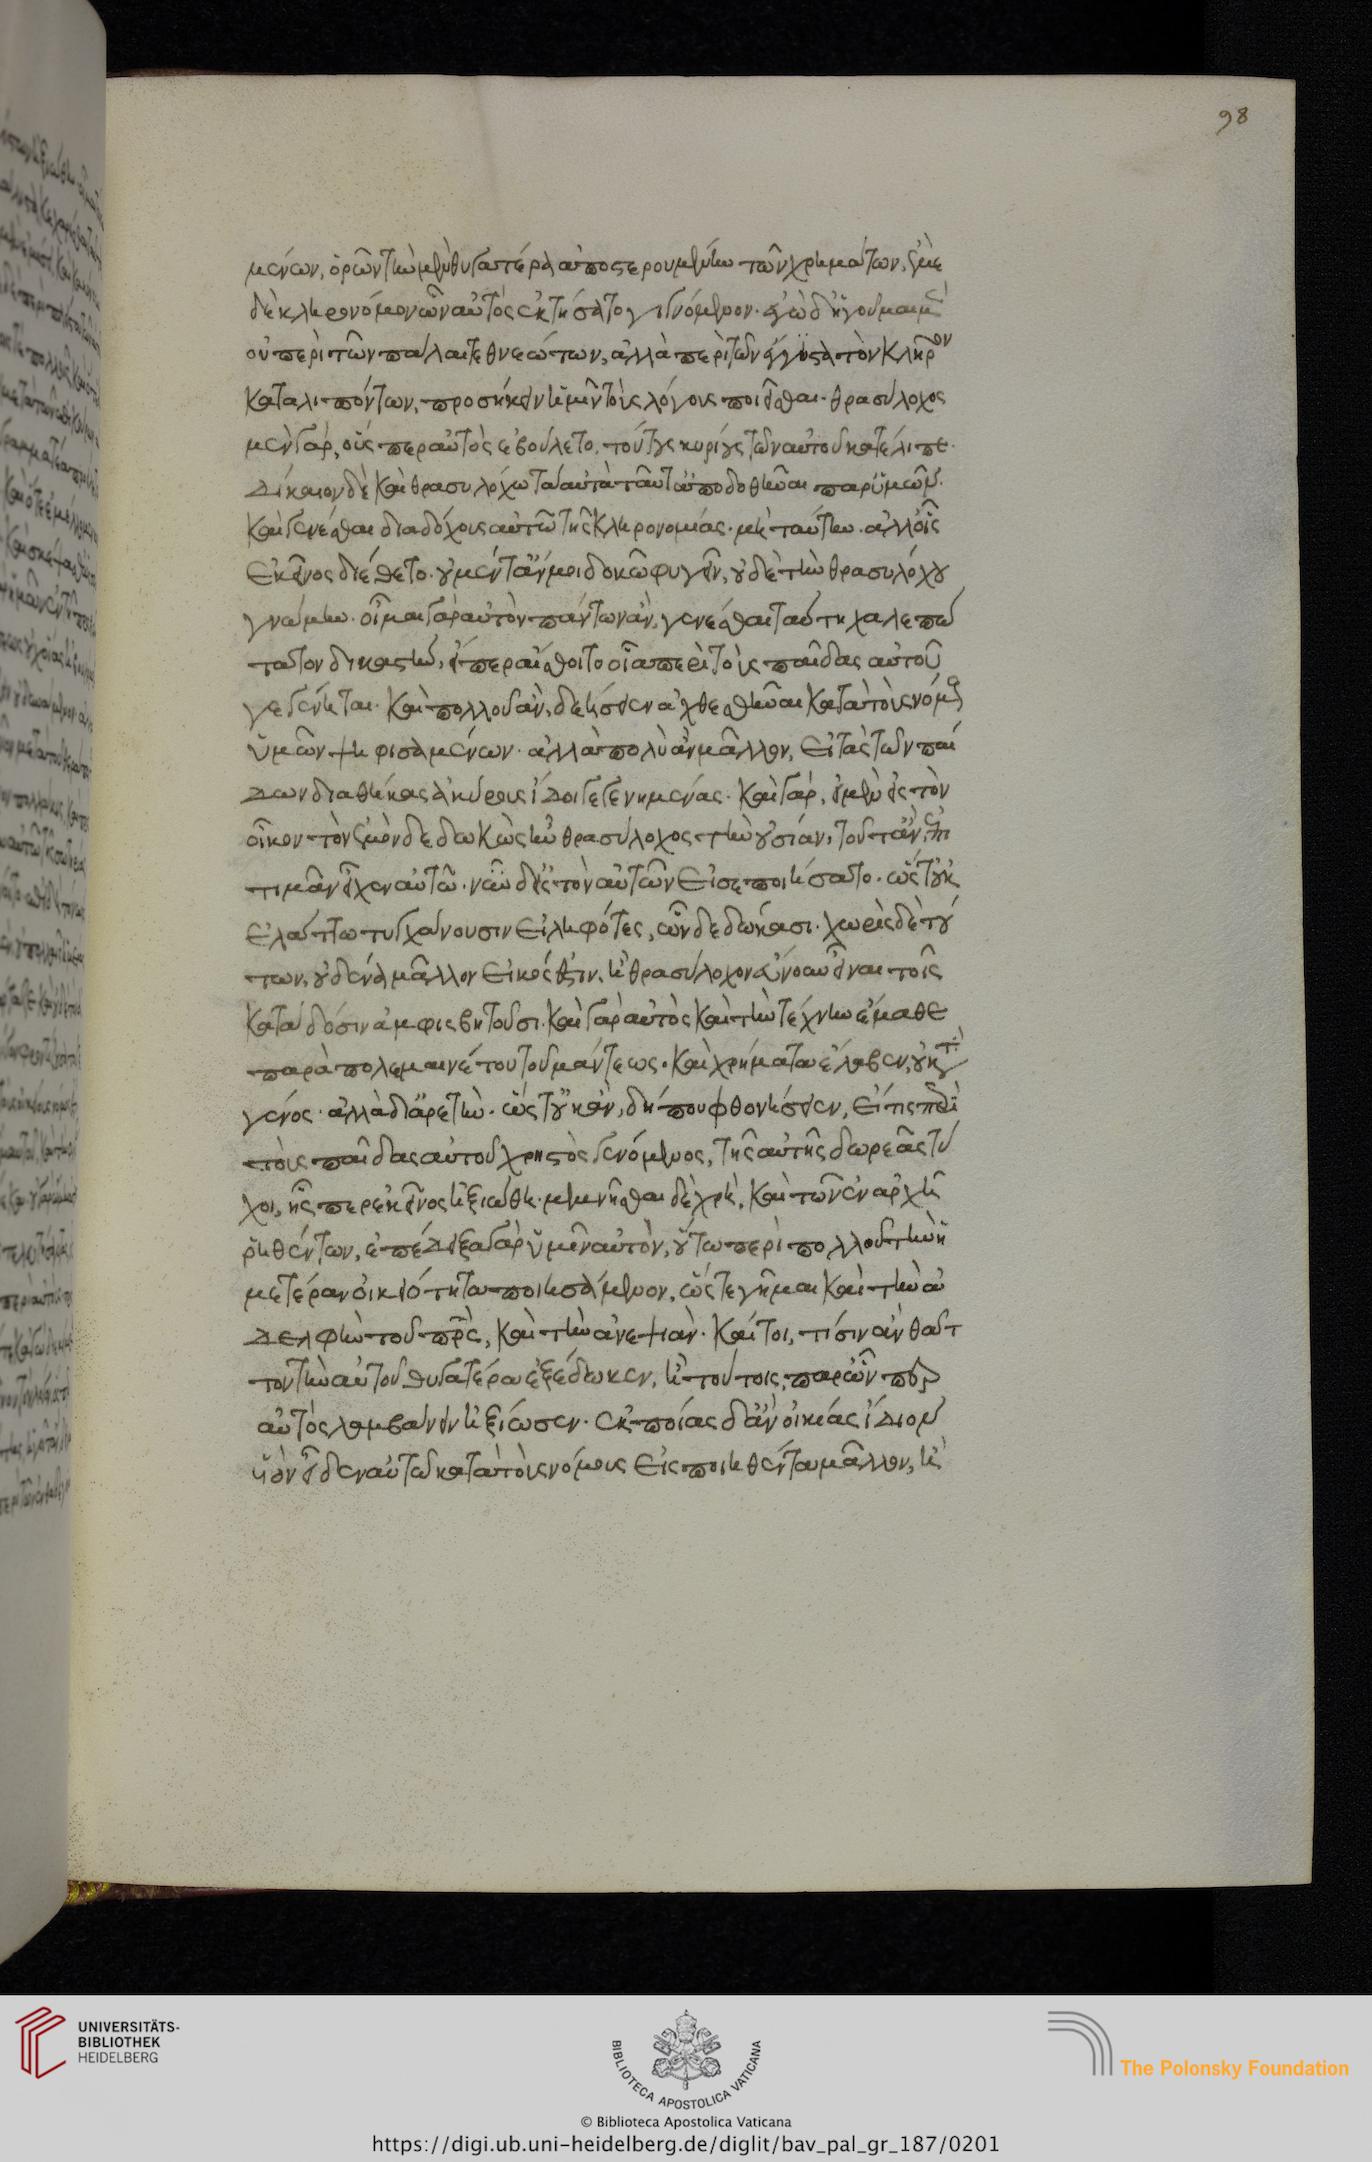 μένων, ὁρῶν τὴν μὲν θυγατέρα ἀποστερουμένην τῶν χρημάτων, ἐμὲ
δὲ κληρονόμον ὧν αὐτὸς ἐκτήσατο γιγνόμενον. ἐγὼ δ' ἡγοῦμαι μὲν
οὐ περὶ τῶν πάλαι τεθνεώτων, ἀλλὰ περὶ τῶν τὸν κλῆρον
καταλιπόντων, προσήκειν ὑμῖν τοὺς λόγους ποιεῖσθαι. θρασύλοχος
μὲν γὰρ, οὕς περ αὐτὸς ἐβούλετο, τούτους κυρίους τῶν αὑτοῦ κατέλιπε.
Δίκαιον δὲ καὶ θρασυλόχω τὰ αὐτὰ ταῦτα ἀποδοθῆναι παρ' ὑμῶν.
καὶ γενέσθαι διαδόχους αὐτῶ τῆς κληρονομίας. μὴ ταύτην. ἀλλ' οἷς
ἐκεῖνος διέθετο. οὐ μέντ' ἄν μοι δοκῶ φυγεῖν, οὐδὲ τὴν θρασυλόχου
γνώμην. οἶμαι γὰρ αὐτὸν πάντων ἂν, γενέσθαι ταύτη χαλεπώ
τατον δικαστὴν, εἴπερ αἴσθοιτο οἷα περὶ τοὺς παῖδας αὐτοῦ
γεγένηται. καὶ πολλοῦ ἂν, δεήσειεν ἀχθεσθῆναι κατὰ τοὺς νόμους
ὑμῶν ψηφισαμένων. ἀλλὰ πολὺ ἂν μᾶλλον, εἰ τὰς τῶν παί
Δων διαθήκας ἀκύρους ἴδοι γεγενημένας. καὶ γὰρ, εἰ μὲν εἰς τὸν
οἶκον τὸν ἐμὸν δεδωκὼς ἦν θρασύλοχος τὴν οὐσίαν, τοῦτ' ἂν, ἐπι
τιμᾶν εἶχεν αὐτῶ. νῦν δ' εἰς τὸν αὑτῶν εἰσεποιήσατο. ὥστ' οὐκ
ἐλάττω τυγχάνουσιν εἰληφότες, ὧν δεδώκασι. χωρὶς δὲ τού
των, οὐδένα μᾶλλον εἰκός ἐστιν, ἢ θρασύλοχον εὔνουν εἶναι τοῖς
κατὰ δόσιν ἀμφισβητοῦσι. καὶ γὰρ αὐτὸς καὶ τὴν τέχνην ἔμαθε
παρὰ πολεμαινέτου τοῦ μάντεως. καὶ χρήματα ἔλαβεν, οὐ κατὰ
γένος. ἀλλὰ δι' ἀρετήν. ὥστ' οὐκ ἂν, δήπου φθονήσειεν, εἴ τις περὶ
τοὺς παῖδας αὐτοῦ χρηστὸς γενόμενος, τῆς αὐτῆς δωρεᾶς τύ
χοι, ἧς περ ἐκεῖνος ἠξιώθη. μεμνῆσθαι δὲ χρὴ, καὶ τῶν ἐν ἀρχῆ
ῥηθέντων, ἐπέδειξα γὰρ ὑμῖν αὐτὸν, οὕτω περὶ πολλοῦ τὴν ἡ
μετέραν οἰκειότητα ποιησάμενον, ὥστε γῆμαι καὶ τὴν ἀ
Δελφὴν τοῦ πατρὸς, καὶ τὴν ἀνεψιάν. καίτοι, τίσιν ἂν θᾶτ
τον τὴν αὑτοῦ θυγατέρα ἐξέδωκεν, ἢ τούτοις, παρ' ὧν περ
αὐτὸς λαμβάνειν ἠξίωσεν. ἐκ ποίας δ' ἂν οἰκίας ἴδιον
υἱὸν εἶδεν αὑτῶ κατὰ τοὺς νόμους εἰσποιηθέντα μᾶλλον, ἢ
98
UNIVERSITÄTS-
BIBLIOTHEK
HEIDELBERG
BIBLIOTECA APOSTOLICA VATICANA
The Polonsky Foundation
© Biblioteca Apostolica Vaticana
https://digi.ub.uni-heidelberg.de/diglit/bav_pal_gr_187/0201